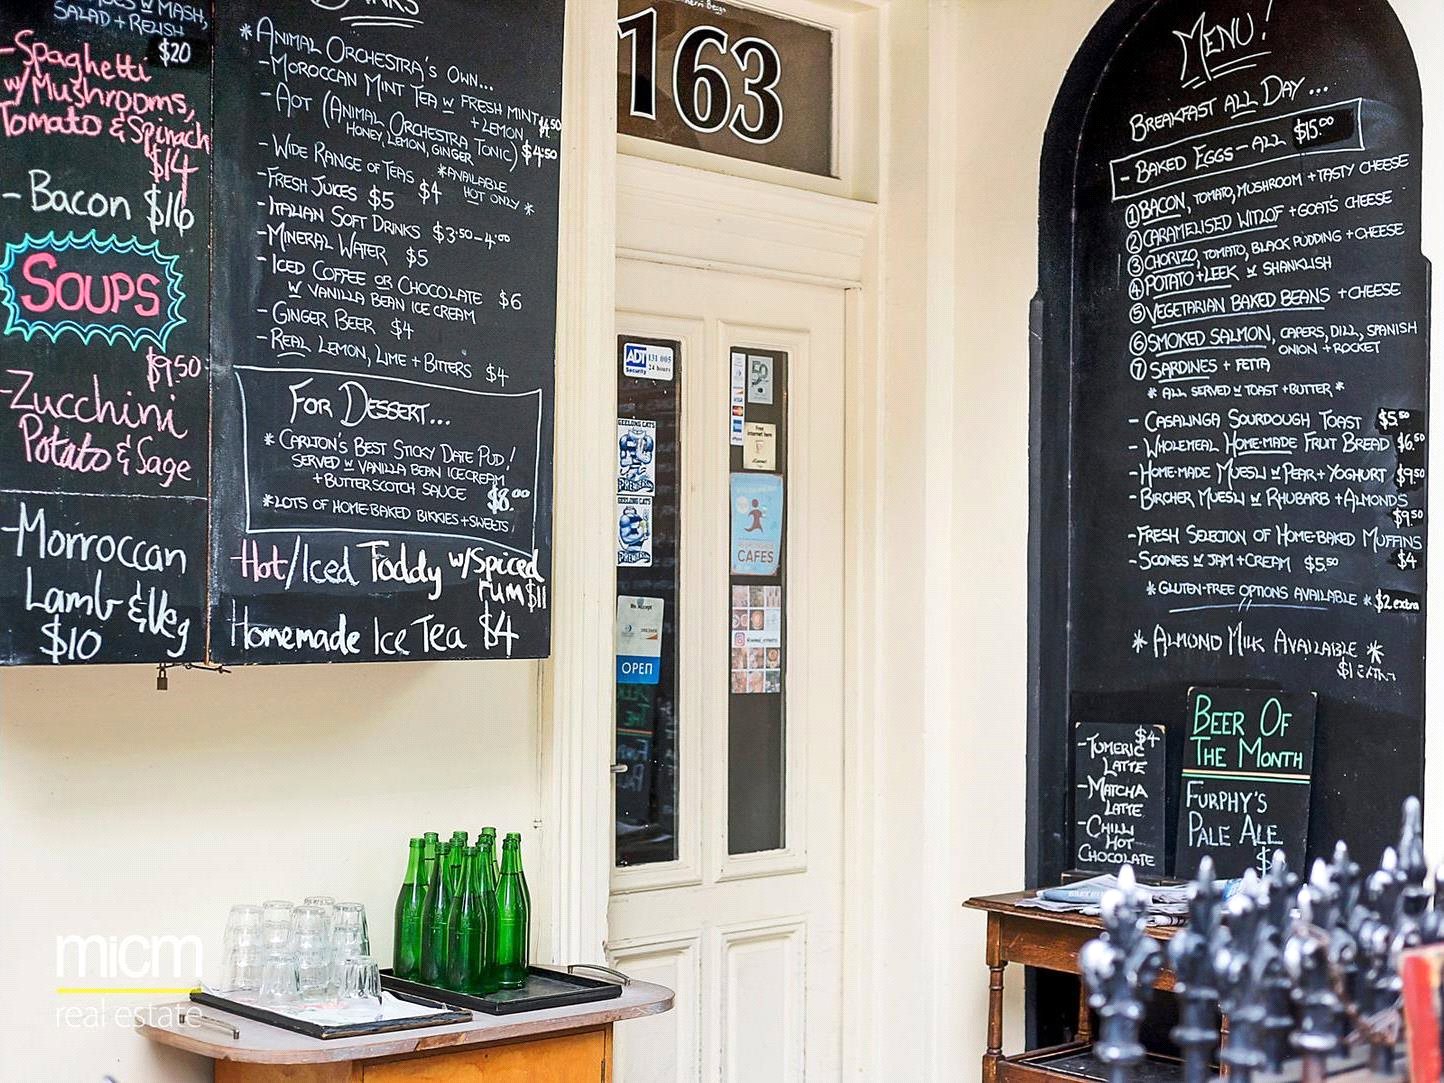 W MASH,
SALAD + RELISH
$20
-Spaghetti
w/Mushrooms,
Tomato & Spinach
$14
-Bacon $16
SOUPS
$9.50
-Zucchini
Potato & Sage
-Morroccan
Lamb & Veg
$10
*ANIMAL ORCHESTRA'S OWN...
-MOROCCAN MINT TEA W FRESH MINT
+ LEMON $4.50
-AOT (ANIMAL ORCHESTRA TONIC) $4.50
HONEY, LEMON, GINGER
-WIDE RANGE OF TEAS $4
*AVAILABLE
HOT ONLY*
-FRESH JUICES $5
-ITALIAN SOFT DRINKS $3.50-4.00
-MINERAL WATER $5
-ICED COFFEE OR CHOCOLATE $6
W VANILLA BEAN ICE CREAM
-GINGER BEER $4
-REAL LEMON, LIME + BITTERS $4
FOR DESSERT...
* CARLTON'S BEST STICKY DATE PUD!
SERVED W VANILLA BEAN ICECREAM
+BUTTERSCOTCH SAUCE $8.00
*LOTS OF HOME-BAKED BIKKIES+SWEETS
Hot/Iced Toddy w/Spiced
rum $11
Homemade Ice Tea $4
163
ADT 131 005
Security 24 hours
GEELONG CATS
GEELONG CATS
50
Free
internet here
CAFES
We Accept
OPEN
MENU!
BREAKFAST ALL DAY ...
- BAKED EGGS - ALL $15.00
① BACON, TOMATO, MUSHROOM + TASTY CHEESE
② CARAMELISED WITLOF + GOAT'S CHEESE
③ CHORIZO, TOMATO, BLACK PUDDING + CHEESE
④ POTATO + LEEK W SHANKLISH
⑤ VEGETARIAN BAKED BEANS + CHEESE
⑥ SMOKED SALMON, CAPERS, DILL, SPANISH
ONION + ROCKET
⑦ SARDINES + FETTA
* ALL SERVED W TOAST + BUTTER *
- CASALINGA SOURDOUGH TOAST $5.50
- WHOLEMEAL HOME-MADE FRUIT BREAD $6.50
- HOME-MADE MUESLI W PEAR + YOGHURT $9.50
- BIRCHER MUESLI W RHUBARB + ALMONDS
$9.50
- FRESH SELECTION OF HOME-BAKED MUFFINS
$4
- SCONES W JAM + CREAM $5.50
* GLUTEN-FREE OPTIONS AVAILABLE * $2 extra
* ALMOND MILK AVAILABLE *
$1 EXTRA
$4
-TUMERIC
LATTE
-MATCHA
LATTE
-CHILLI
HOT
CHOCOLATE
BEER OF
THE MONTH
FURPHY'S
PALE ALE
$
micm
real estate